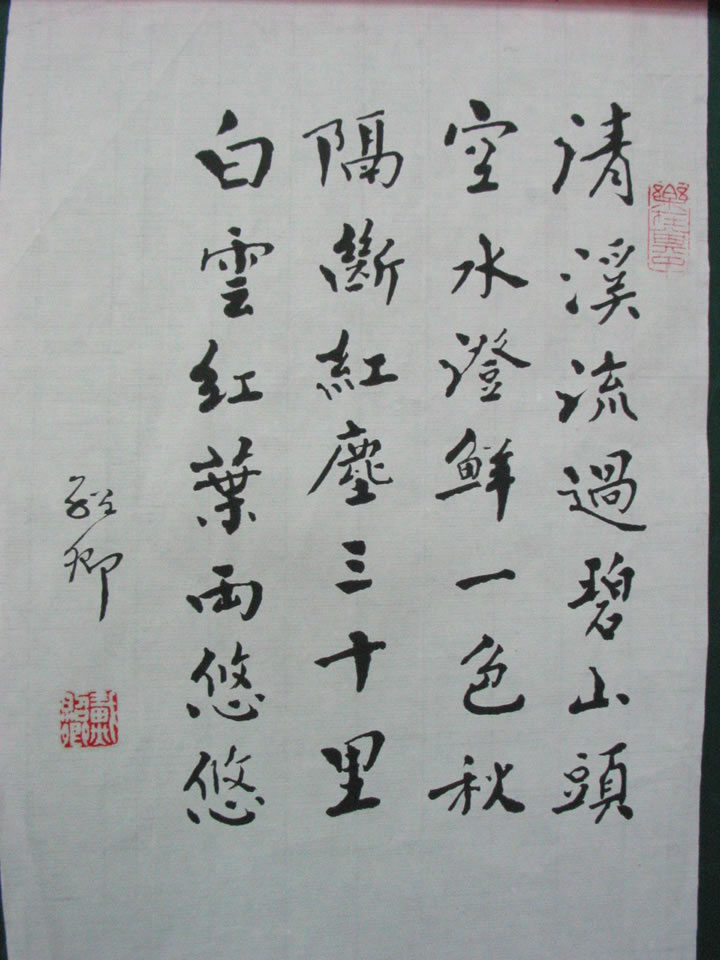 樂在其中
清溪流過碧山頭
空水澄鮮一色秋
隔斷紅塵三十里
白雲紅葉兩悠悠
卿